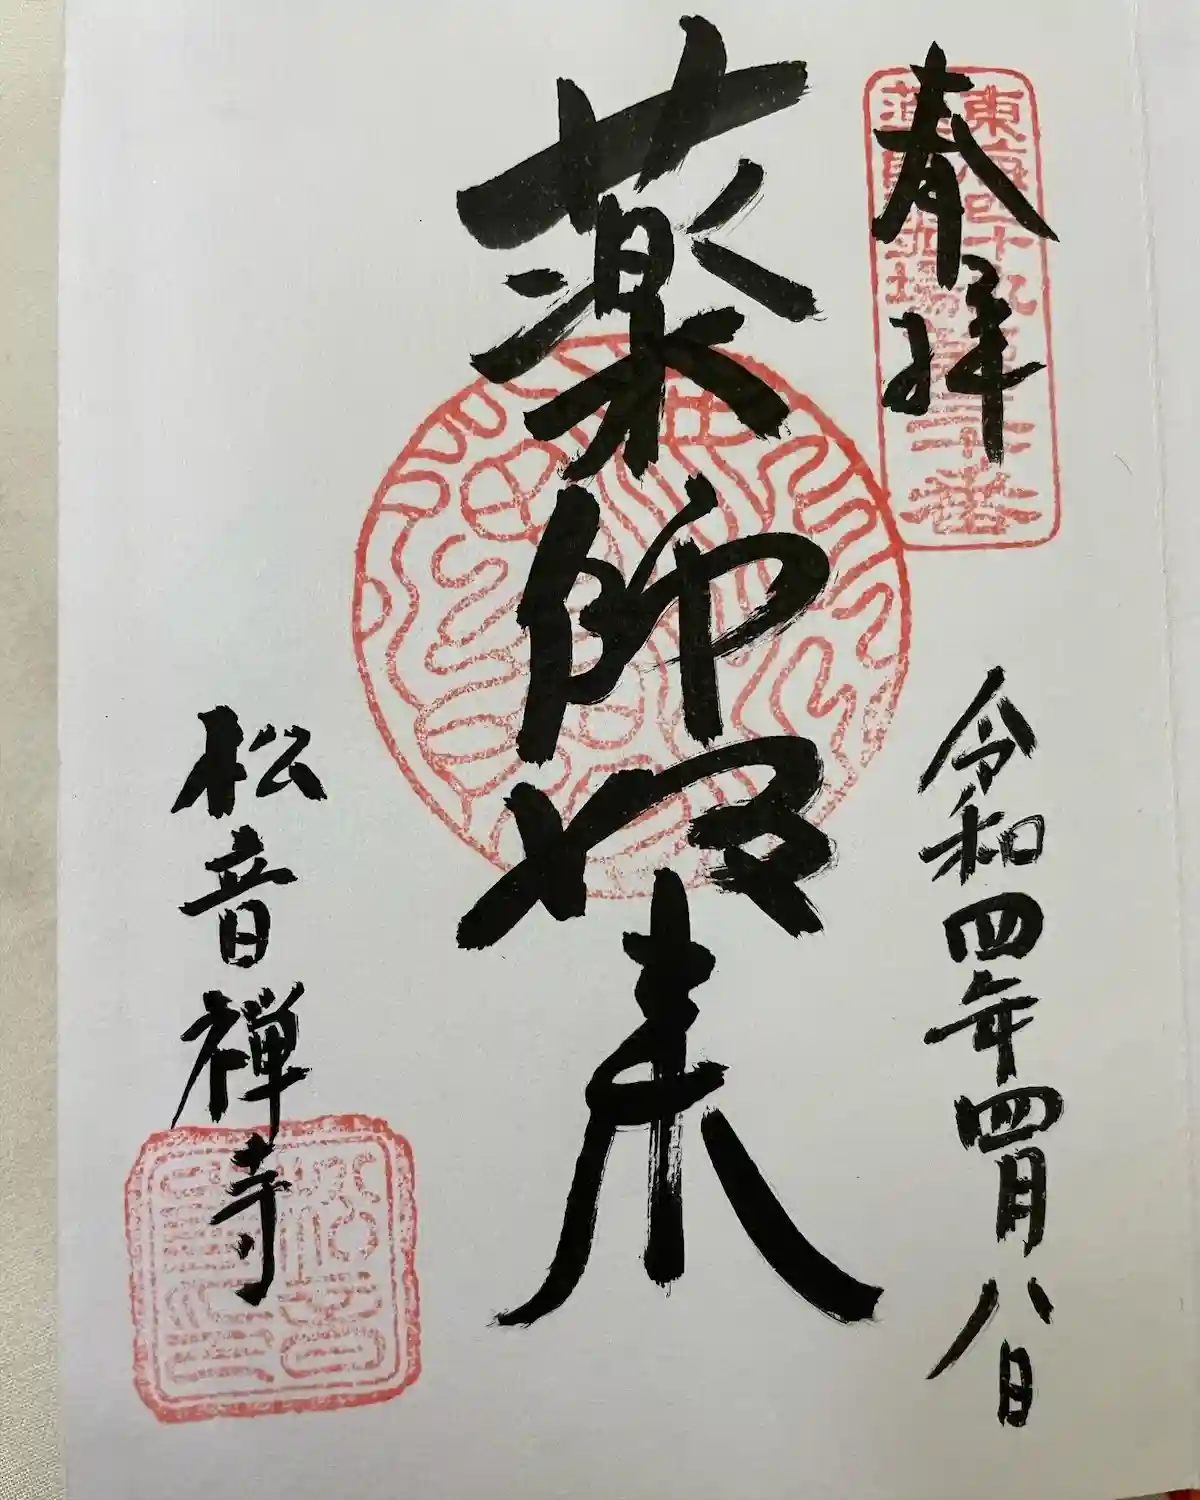 奉拝
東海四十九薬師
薬師霊場第二十番
令和四年四月八日
薬師如来
松音禅寺